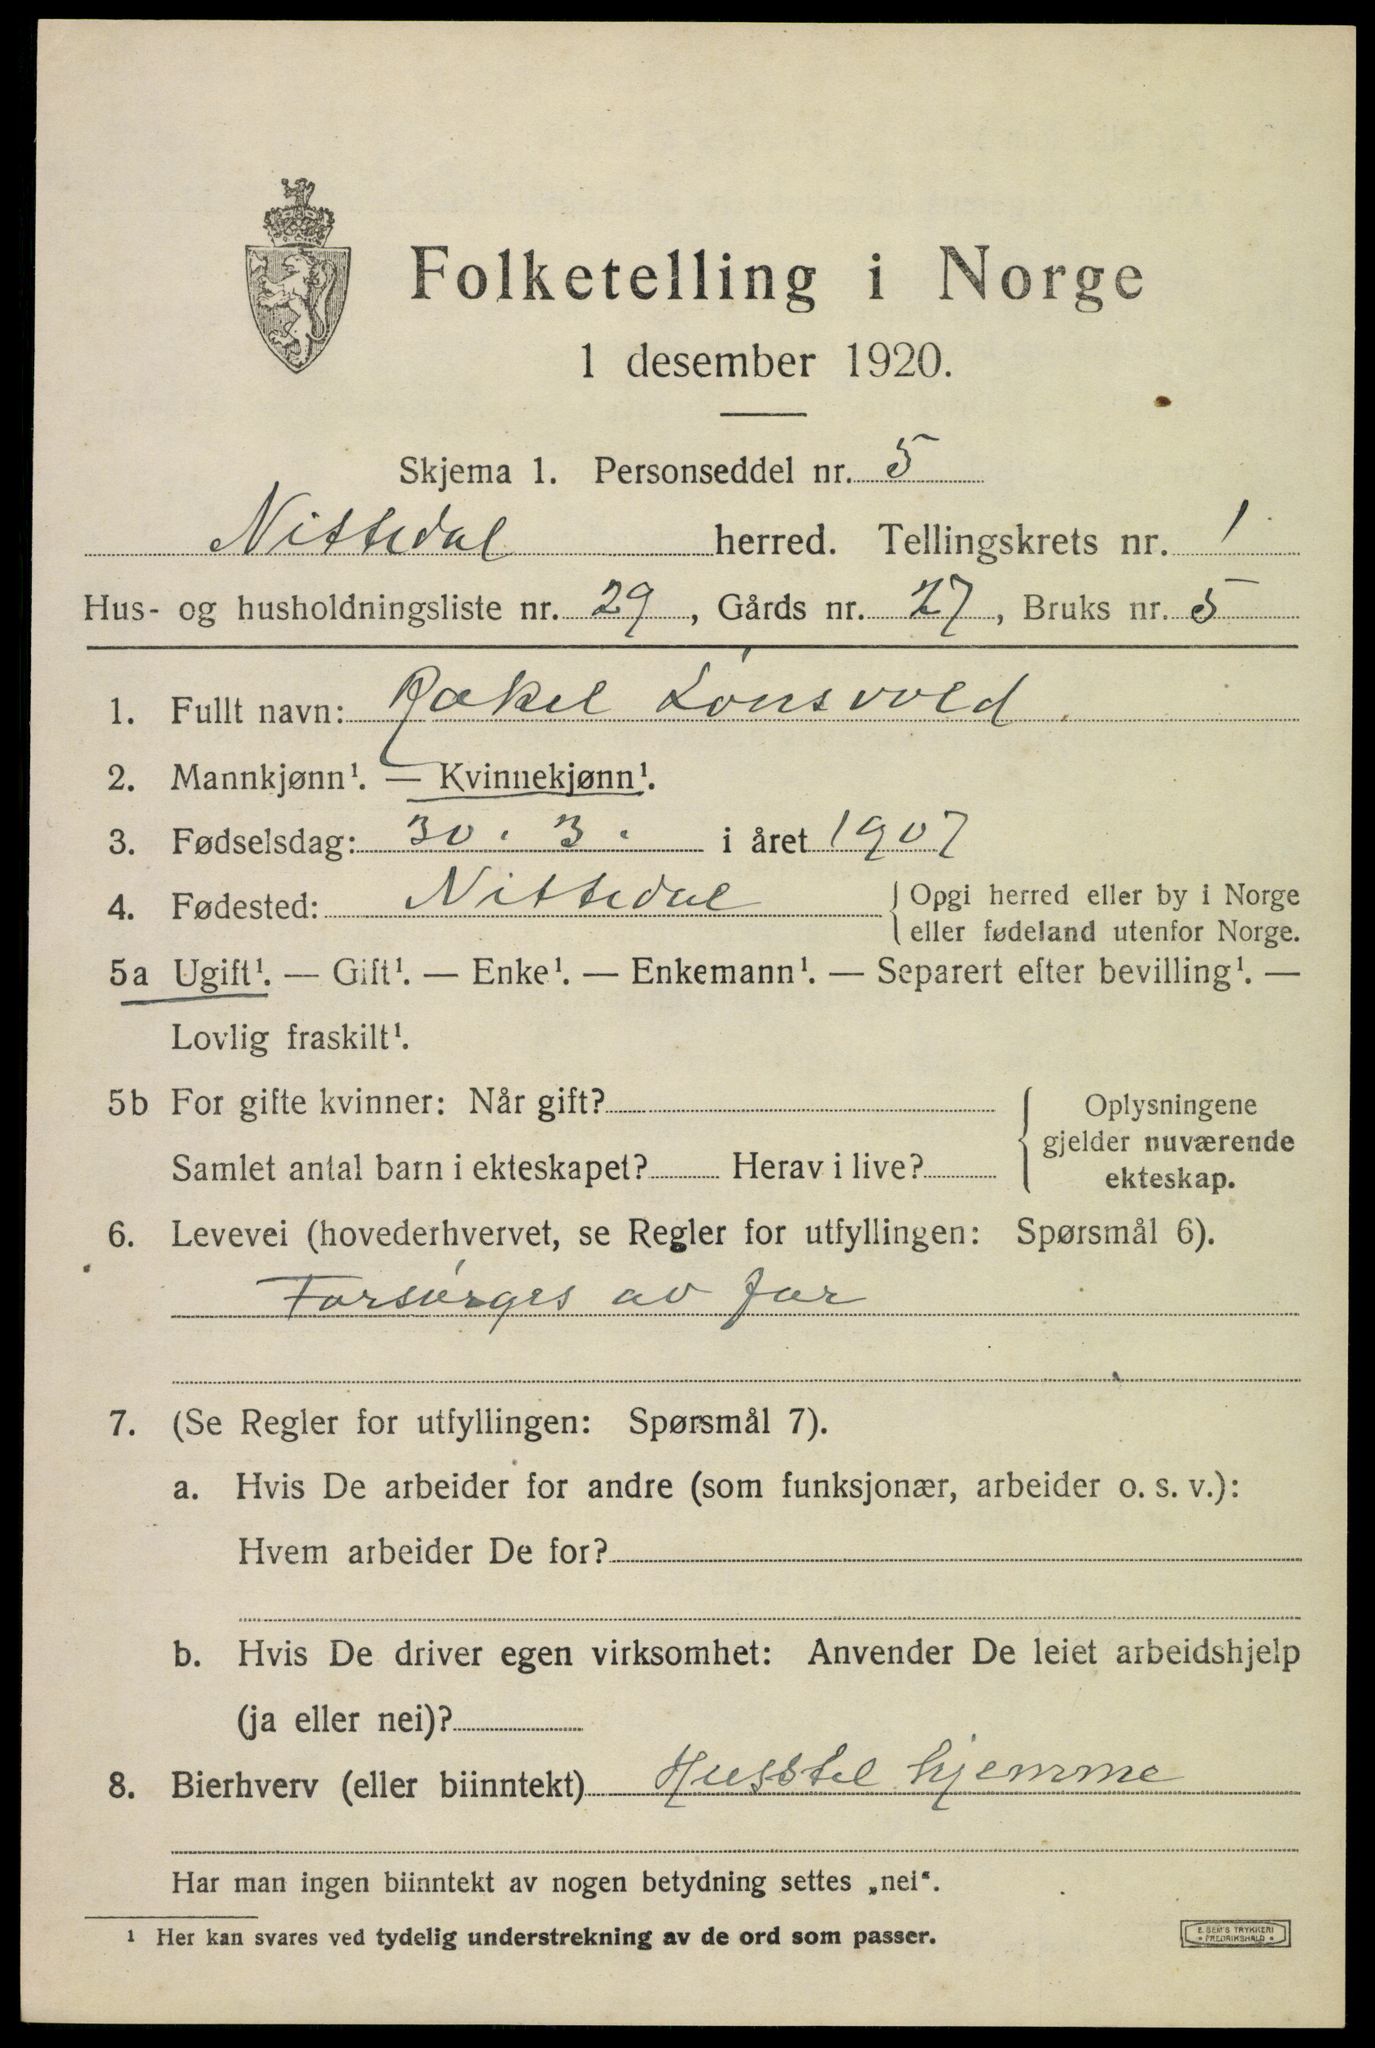 Folketelling i Norge
1 desember 1920.
Skjema 1. Personseddel nr. 5
Nittedal herred. Tellingskrets nr. 1
Hus- og husholdningsliste nr. 29, Gårds nr. 27, Bruks nr. 5
1. Fullt navn: Rakel Lønsvold
2. Mannkjønn¹. — Kvinnekjønn¹.
3. Fødselsdag: 30. 3. i året 1907
4. Fødested: Nittedal { Opgi herred eller by i Norge
eller fødeland utenfor Norge.
5a Ugift¹. — Gift¹. — Enke¹. — Enkemann¹. — Separert efter bevilling¹. —
Lovlig fraskilt¹.
5b For gifte kvinner: Når gift?
Samlet antal barn i ekteskapet? Herav i live?
{ Oplysningene
gjelder nuværende
ekteskap.
6. Levevei (hovederhvervet, se Regler for utfyllingen: Spørsmål 6).
Forsørges av far
7. (Se Regler for utfyllingen: Spørsmål 7).
a. Hvis De arbeider for andre (som funksjonær, arbeider o. s. v.):
Hvem arbeider De for?
b. Hvis De driver egen virksomhet: Anvender De leiet arbeidshjelp
(ja eller nei)?
8. Bierhverv (eller biinntekt) Husstel hjemme
Har man ingen biinntekt av nogen betydning settes „nei“.
¹ Her kan svares ved tydelig understrekning av de ord som passer.
E. SEM'S TRYKKERI
• FREDRIKSHALD •